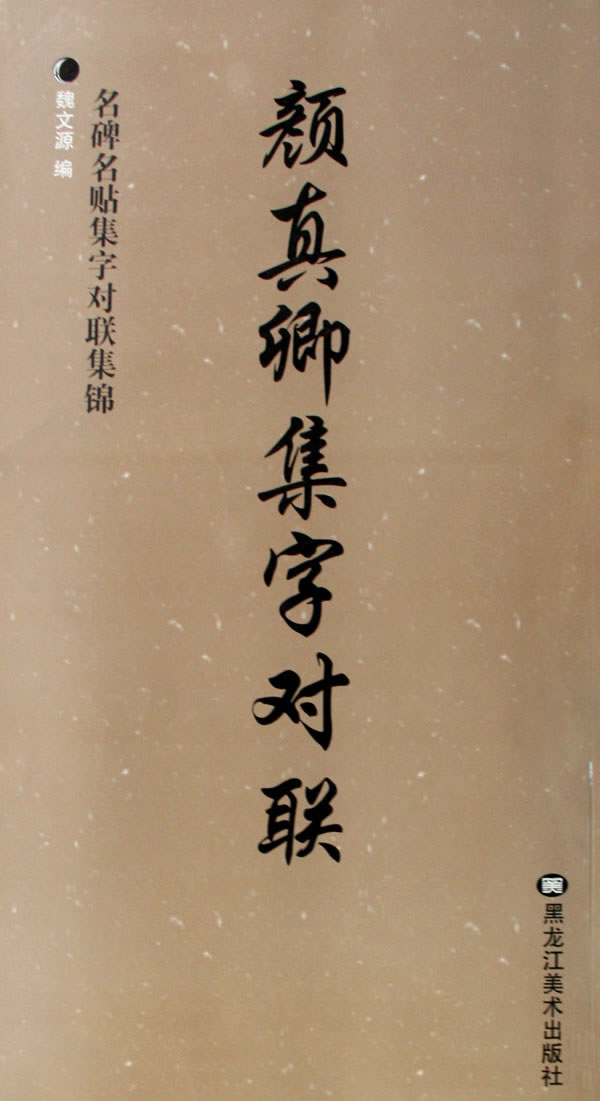 颜真卿集字对联
名碑名贴集字对联集锦
魏文源 编
黑龙江美术出版社